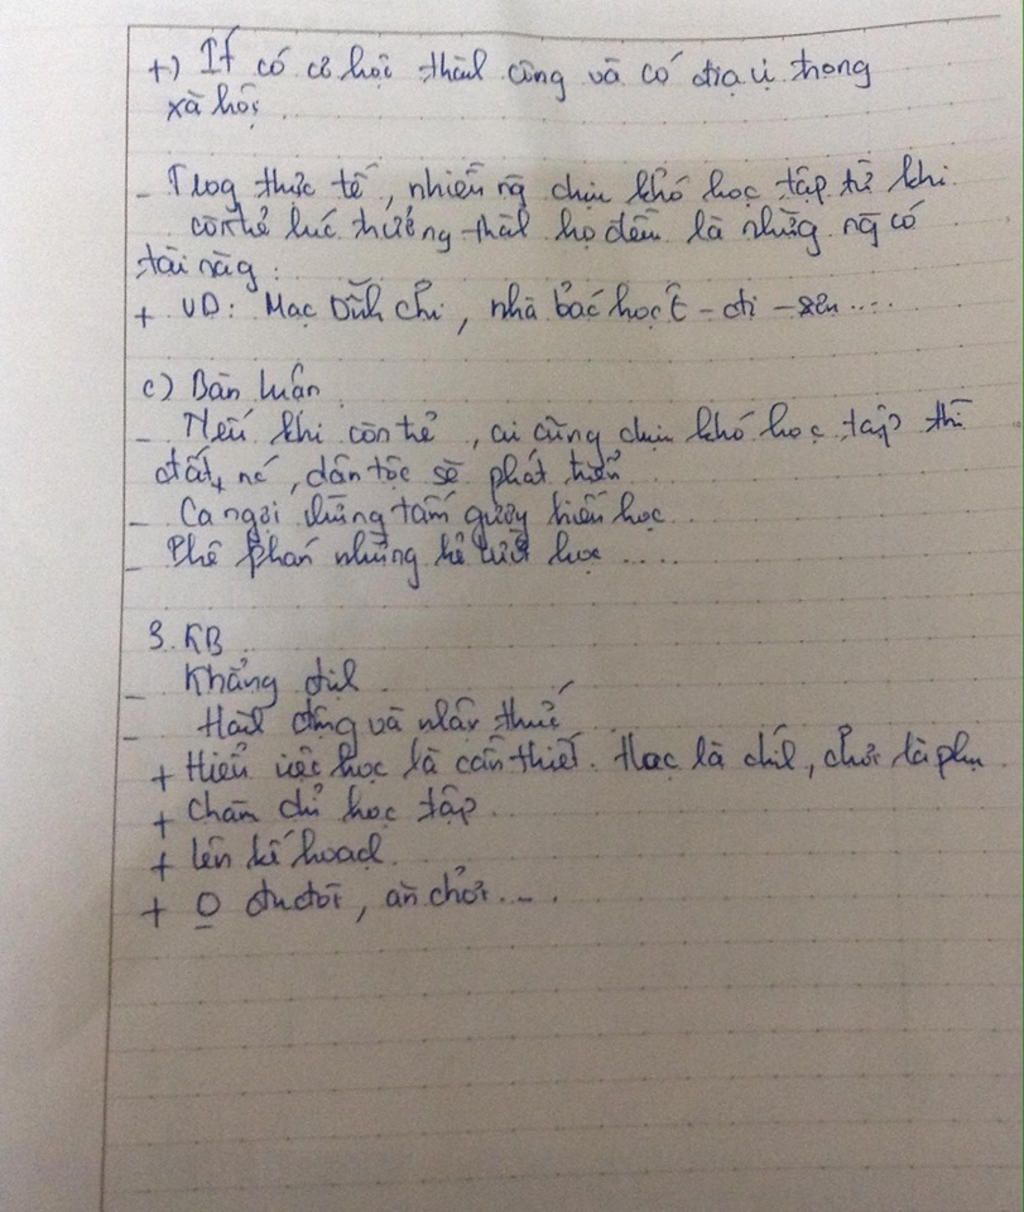 +) Ít có cơ hội thành công và có địa vị trong
xã hội.
- Trog thực tế, nhiều ng chịu khó học tập từ khi
còn trẻ lúc trưởng thành họ đều là những ng có
tài năg:
+ VD: Mạc Đĩnh Chi, nhà bác học Ê-đi-xơn....
c) Bàn luận
- Nếu khi còn trẻ, ai cũng chịu khó học tập thì
đất nc, dân tộc sẽ phát triển
- Ca ngợi những tấm gương hiếu học
- Phê phán những kẻ lười học .....
3. KB.
- Khẳng định
- Hành động và nhận thức
+ Hiểu việc học là cần thiết. Học là chính, chơi là phụ
+ Chăm chỉ học tập.
+ Lên kế hoạch.
+ O đua đòi, ăn chơi....